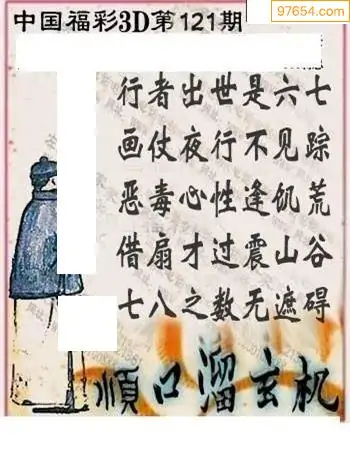 97654.com
中国福彩3D第121期
行者出世是六七
画仗夜行不见踪
恶毒心性逢饥荒
借扇才过震山谷
七八之数无遮碍
顺口溜玄机